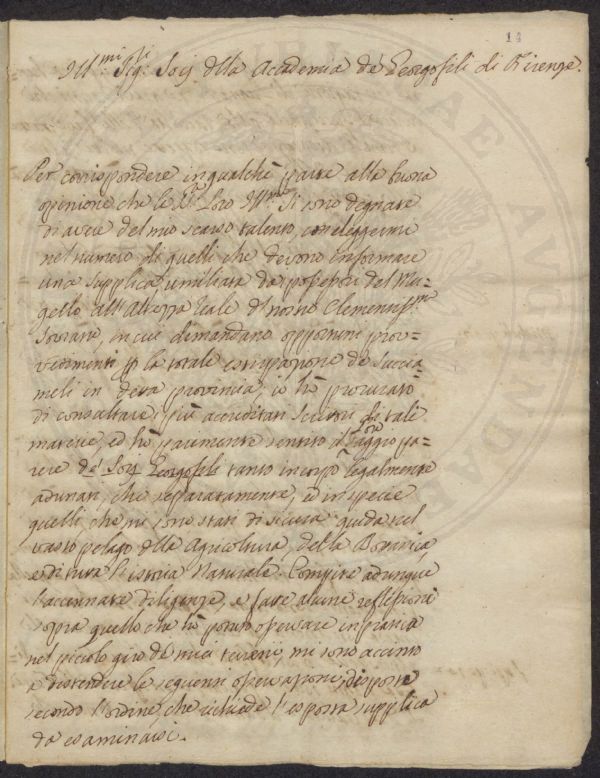 14
Ill.mi Sig.ri Socj della Accademia de' Georgofili di Firenze.
Per corrispondere in qualche parte alla buona
opinione che le LL.re Loro Ill.me si sono degnate
di avere del mio scarso talento, con eleggermi
nel numero di quelli che devono informare
una supplica umiliata da' possessori del Mu-
gello all'Altezza Reale del nostro Clementiss.mo
Sovrano, in cui dimandano opportuni prov-
vedimenti p la totale estirpazione de' Succia-
meli in detta provincia, io hò procurato
di consultare i più accreditati Scrittori di tale
materia, ed hò parimente sentito il saggio pa-
rere de' Socj Georgofili tanto in corpo legalmente
adunati, che separatamente, ed in specie
quelli che mi sono stati di sicura guida nel
vasto pelago della Agricoltura, della Botanica,
e di tutta l'istoria Naturale. Compite adunque
l'accennate diligenze, e fatte alcune reflessioni
sopra quello che hò potuto osservare in pratica
nel piccolo giro de' miei terreni, mi sono accinto
a distendere le seguenti osservazioni, disposte
secondo l'ordine, che richiede l'esposta supplica
da esaminarsi.